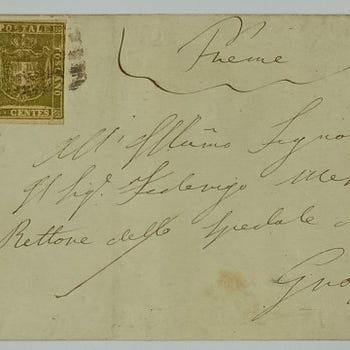 POSTALE
CENTES
Preme
All' Illmo Signo
Il Sig. Federigo
Rettore dello Spedale